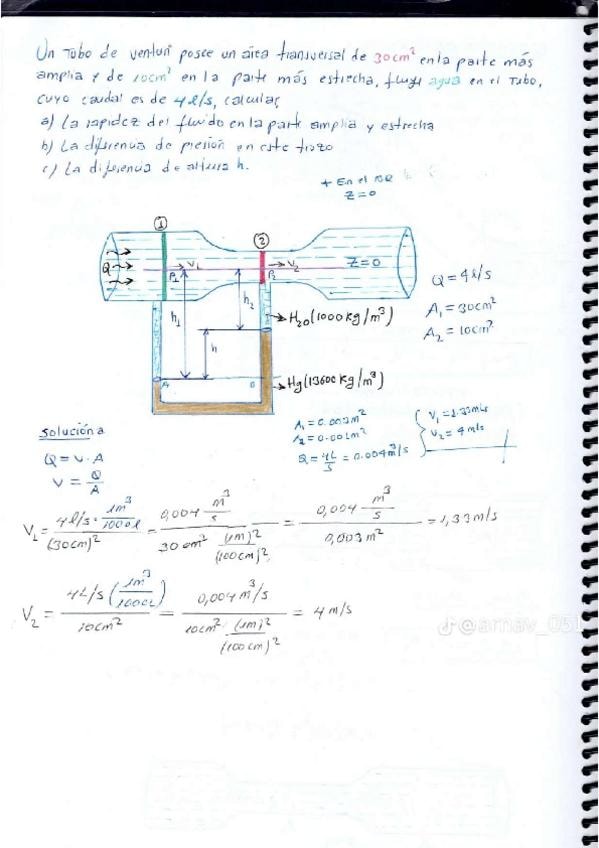 Un Tubo de venturi posee un área transversal de 30cm² en la parte más
amplia y de 10cm² en la parte más estrecha, fluye agua en el Tubo,
cuyo caudal es de 4l/s, calcular
a) La rapidez del fluido en la parte amplia y estrecha
b) La diferencia de presión en este trozo
c) La diferencia de altura h.
+ En el
Z=0
① ②
Q V₁ P₁ V₂ P₂ Z=0
Q=4l/s
A₁=30cm²
A₂=10cm²
h₁ h₂ h
H₂O(1000kg/m³)
A B Hg(13600kg/m³)
Solución a
Q=V·A
V=Q/A
A₁=0.003m²
A₂=0.001m²
Q=4L/s=0.004m³/s
V₁=1.33m/s
V₂=4m/s
V₁=4l/s·1m³/1000l/(30cm)²=0,004 m³/s/30cm² (1m)²/(100cm)²=0,004 m³/s/0,003m²=1,33m/s
V₂=4L/s(1m³/1000L)/10cm²=0,004m³/s/10cm² (1m)²/(100cm)²=4m/s
@arnav_051